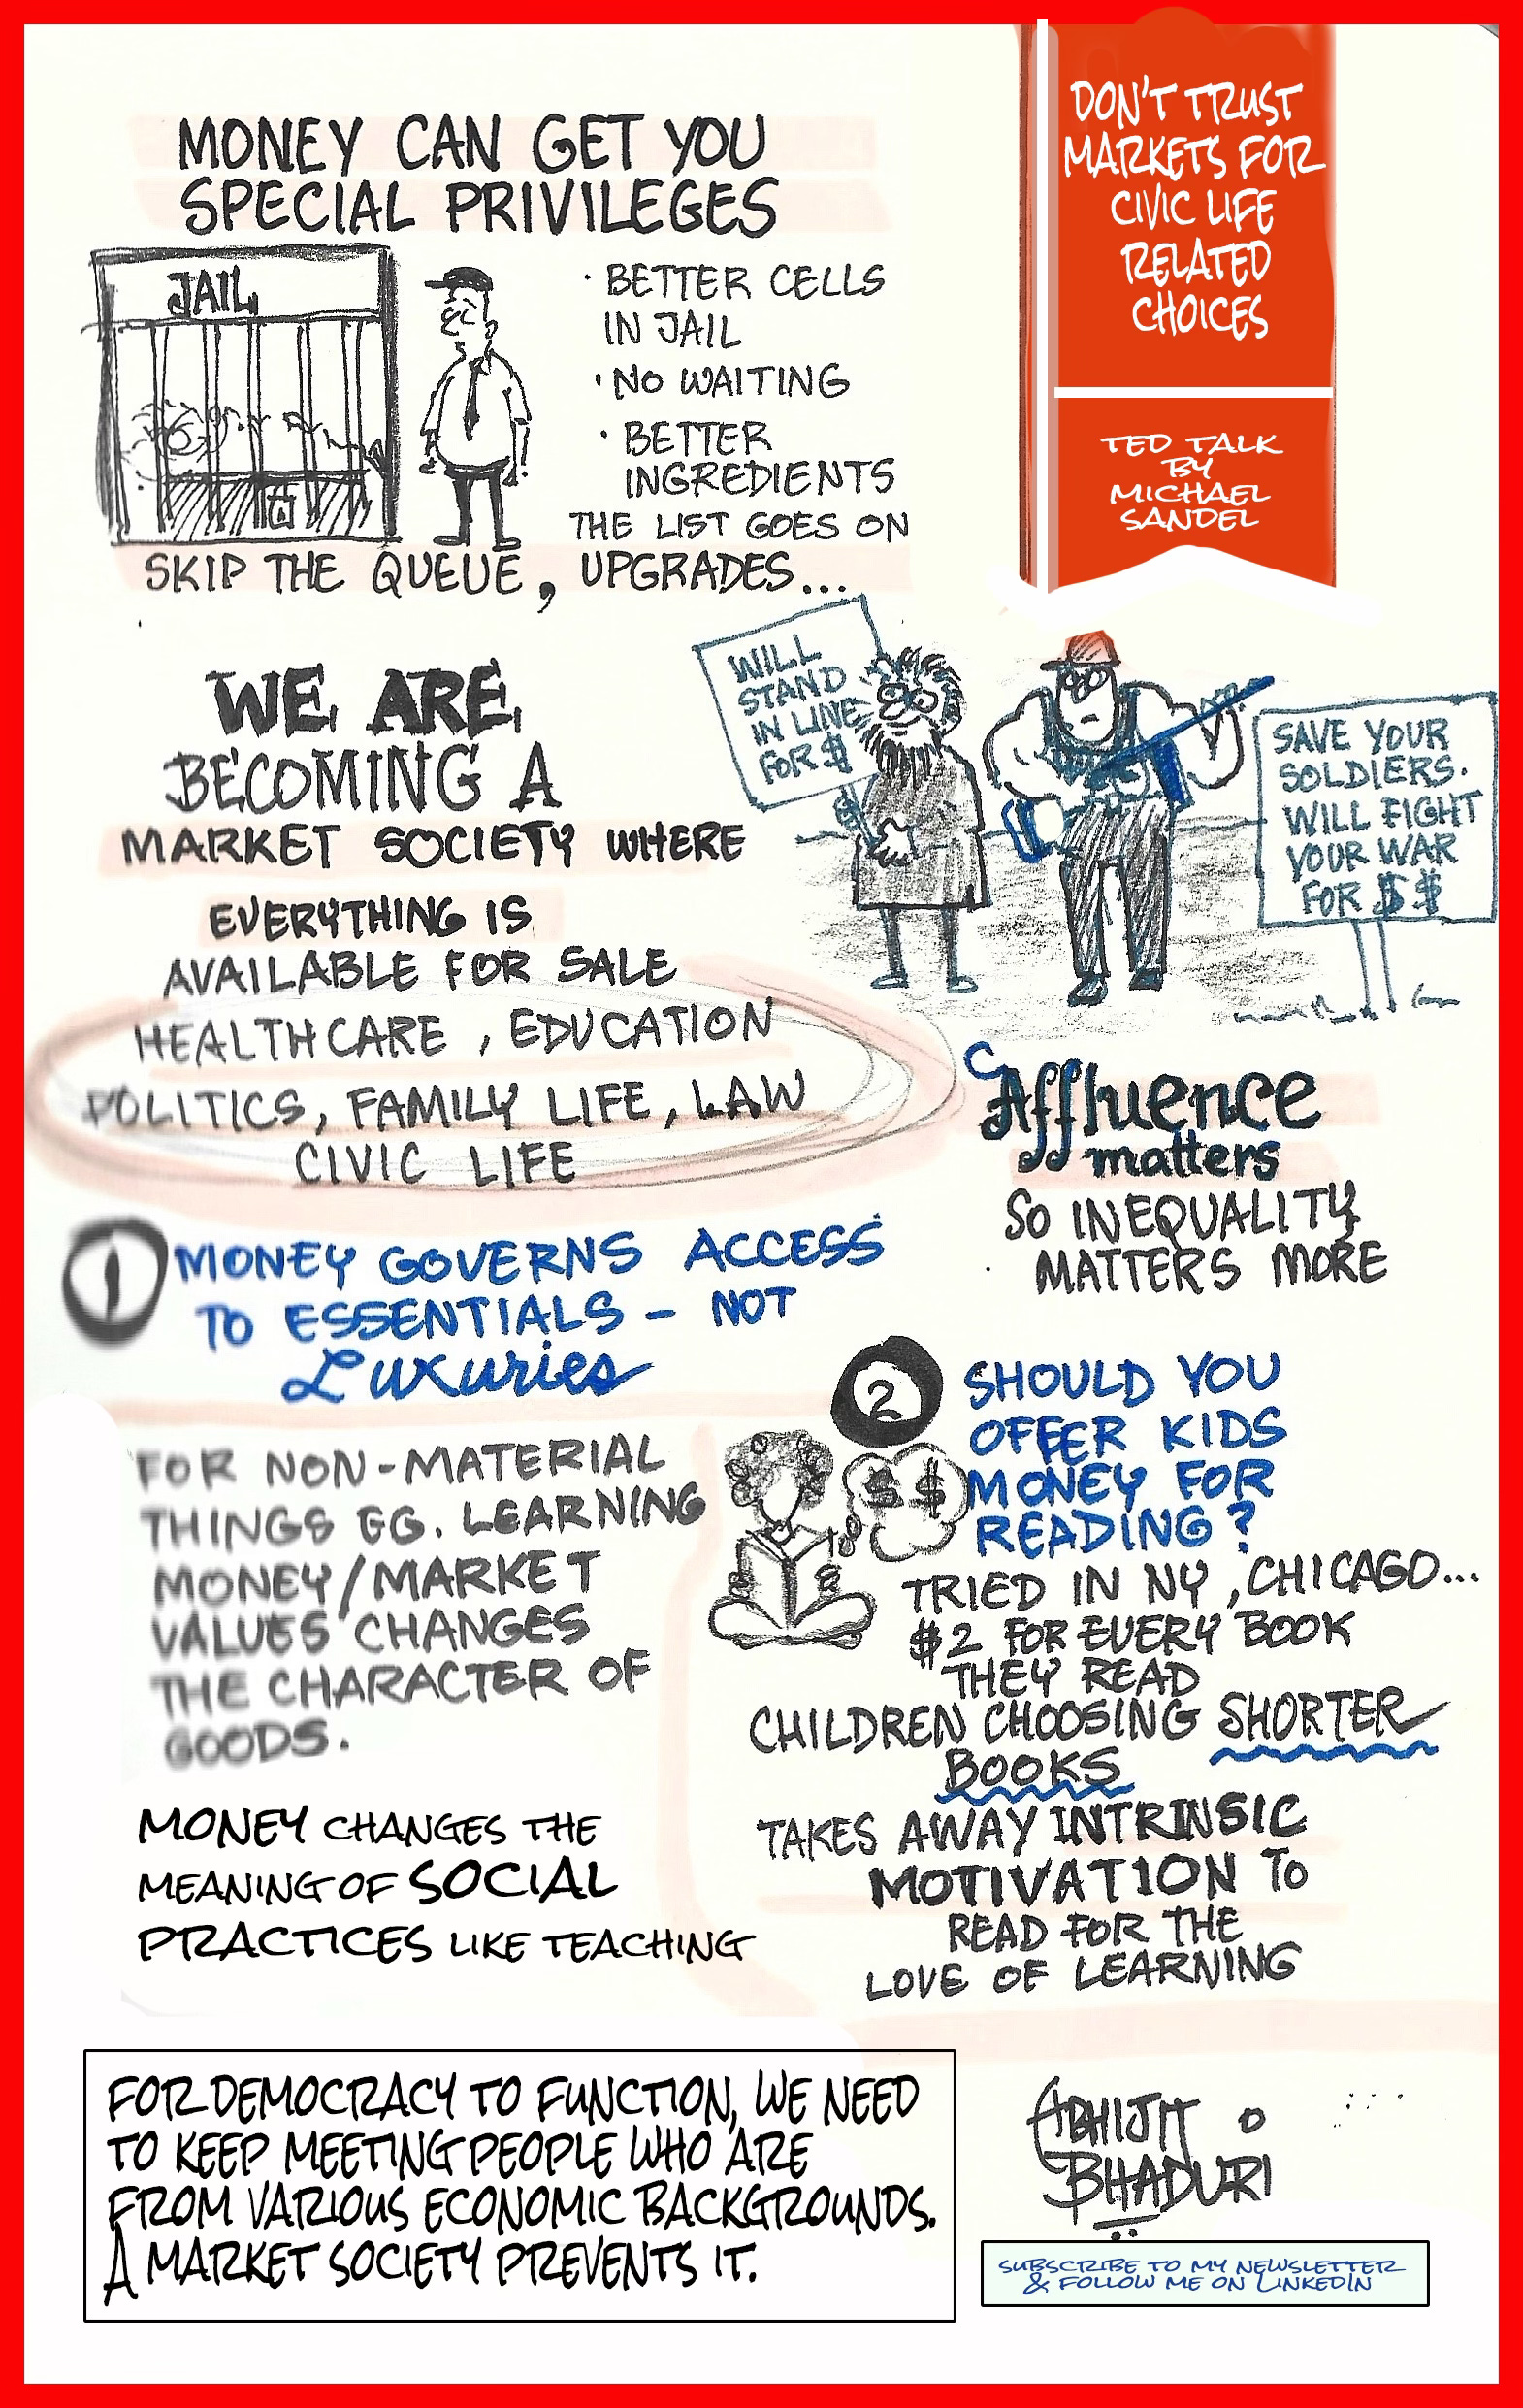 DON'T TRUST
MARKETS FOR
CIVIC LIFE
RELATED
CHOICES
TED TALK
BY
MICHAEL
SANDEL
MONEY CAN GET YOU
SPECIAL PRIVILEGES
JAIL
· BETTER CELLS
IN JAIL
· NO WAITING
· BETTER
INGREDIENTS
THE LIST GOES ON
SKIP THE QUEUE, UPGRADES...
WILL
STAND
IN LINE
FOR $
SAVE YOUR
SOLDIERS.
WILL FIGHT
YOUR WAR
FOR $ $
WE ARE
BECOMING A
MARKET SOCIETY WHERE
EVERYTHING IS
AVAILABLE FOR SALE
HEALTHCARE, EDUCATION
POLITICS, FAMILY LIFE, LAW
CIVIC LIFE
Affluence
matters
SO INEQUALITY
MATTERS MORE
1 MONEY GOVERNS ACCESS
TO ESSENTIALS - NOT
Luxuries
FOR NON-MATERIAL
THINGS EG. LEARNING
MONEY/MARKET
VALUES CHANGES
THE CHARACTER OF
GOODS.
MONEY CHANGES THE
MEANING OF SOCIAL
PRACTICES LIKE TEACHING
2 SHOULD YOU
OFFER KIDS
MONEY FOR
READING?
$ $
TRIED IN NY, CHICAGO...
$2 FOR EVERY BOOK
THEY READ
CHILDREN CHOOSING SHORTER
BOOKS
TAKES AWAY INTRINSIC
MOTIVATION TO
READ FOR THE
LOVE OF LEARNING
FOR DEMOCRACY TO FUNCTION, WE NEED
TO KEEP MEETING PEOPLE WHO ARE
FROM VARIOUS ECONOMIC BACKGROUNDS.
A MARKET SOCIETY PREVENTS IT.
ABHIJIT
BHADURI
SUBSCRIBE TO MY NEWSLETTER
& FOLLOW ME ON LINKEDIN